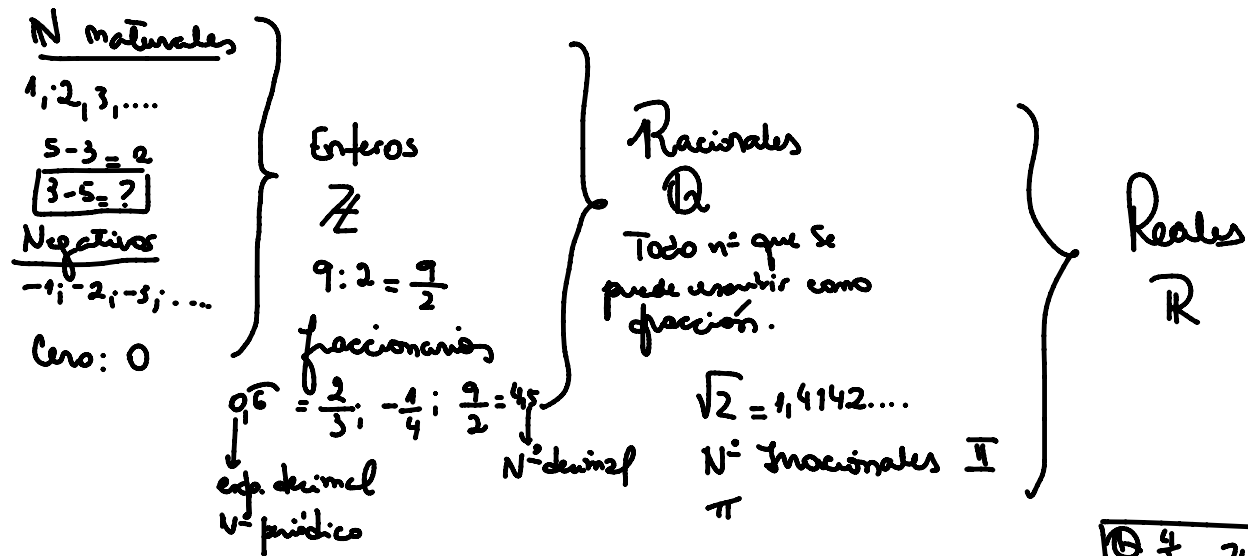 ℕ naturales
1, 2, 3, ....
5-3 = 2
3-5 = ?
Negativos
-1; -2; -3; ....
Cero: 0
Enteros
ℤ
9:2 = 9/2
fraccionarios
0,6̂ = 2/3; -1/4; 9/2 = 4,5
exp. decimal
Nº periódico
Nº decimal
Racionales
ℚ
Todo nº que se
puede escribir como
fracción.
√2 = 1,4142....
Nº Irracionales 𝕀
π
Reales
ℝ
ℚ 4